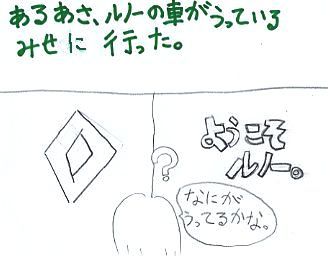 あるあさ、ルノーの車がうっている
みせに 行った。
ようこそ
ルノー。
?
なにが
うってるかな。